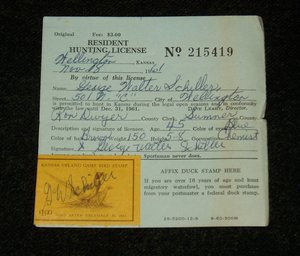 Original Fee: $3.00
RESIDENT
HUNTING LICENSE Nº 215419
Wellington, KANSAS
Nov 15 1961
By virtue of this license
Name George Walter Schiller
Street 501 E "C" City of Wellington
is permitted to hunt in Kansas during the legal open seasons and in conformity
with laws to Dec. 31, 1961. DAVE LEAHY, Director.
Ron Dwyer County Clerk Sumner County
Description and signature of licensee. Age 45 Color of Eyes Blue
Color of Hair Brown Weight 150 Height 5
Signature X George Walter Schiller
Sportsman never does.
KANSAS UPLAND GAME BIRD STAMP
G W Schiller
$1.00
VOID AFTER DECEMBER 31, 1961
AFFIX DUCK STAMP HERE
If you are over 16 years of age and hunt
migratory waterfowl, you must purchase
from your postmaster a federal duck stamp.
28-5200-12-S 9-60-300M